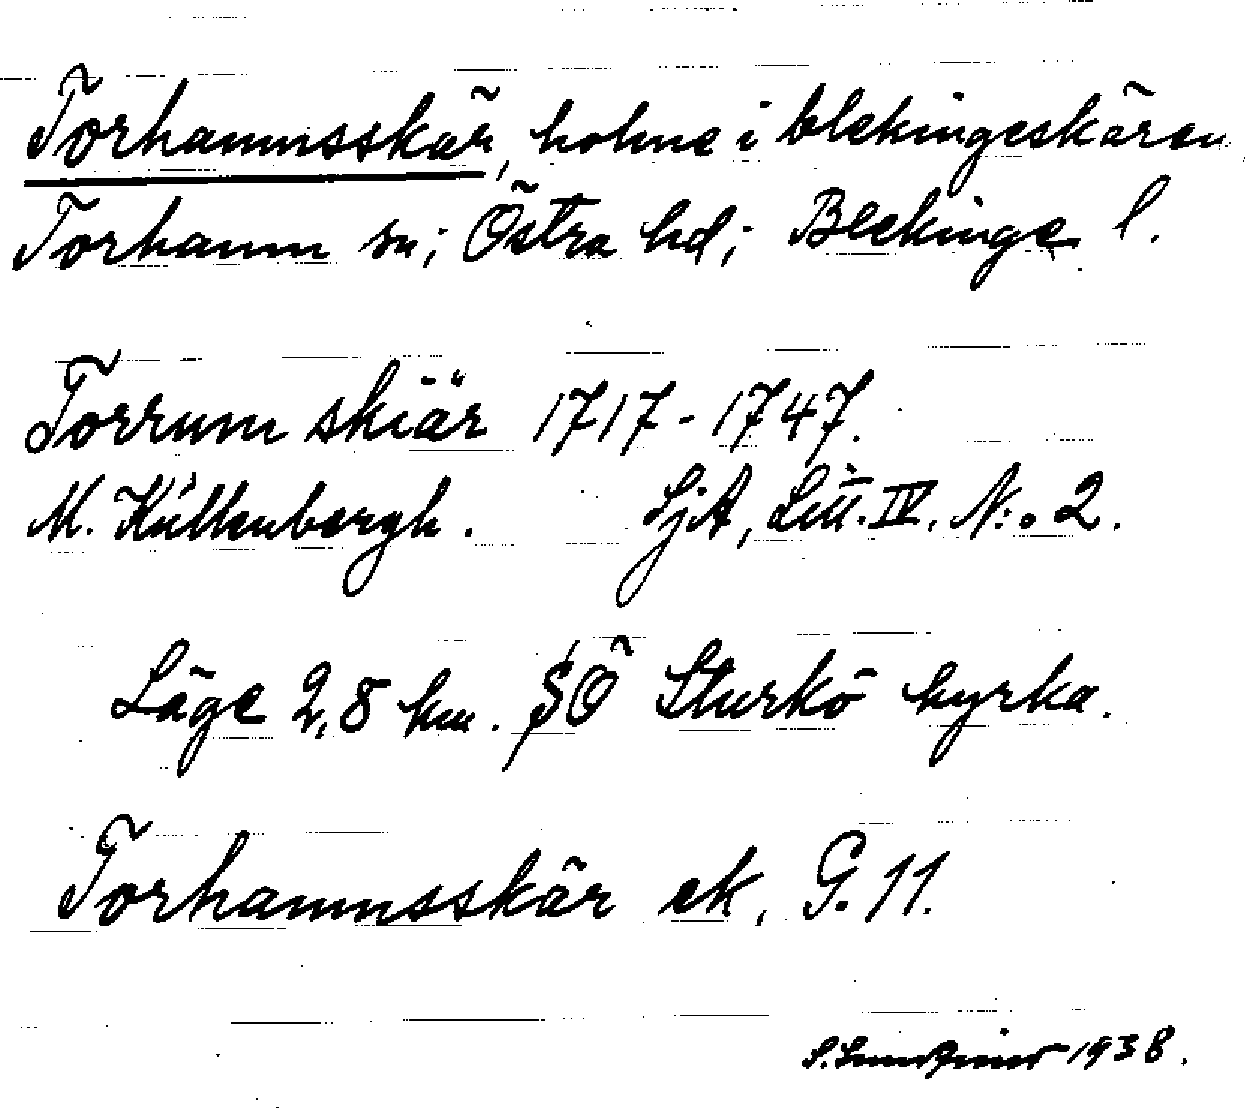 Torhamnsskär, holme i blekingeskären
Torhamn sn; Östra hd; Blekinge l.
Torrum skiär 1717-1747.
M. Küllenbergh. SjA, Litt. IV. N:o 2.
Läge 2,8 km. SÖ Sturkö kyrka.
Torhamnsskär ek, G. 11.
1938.